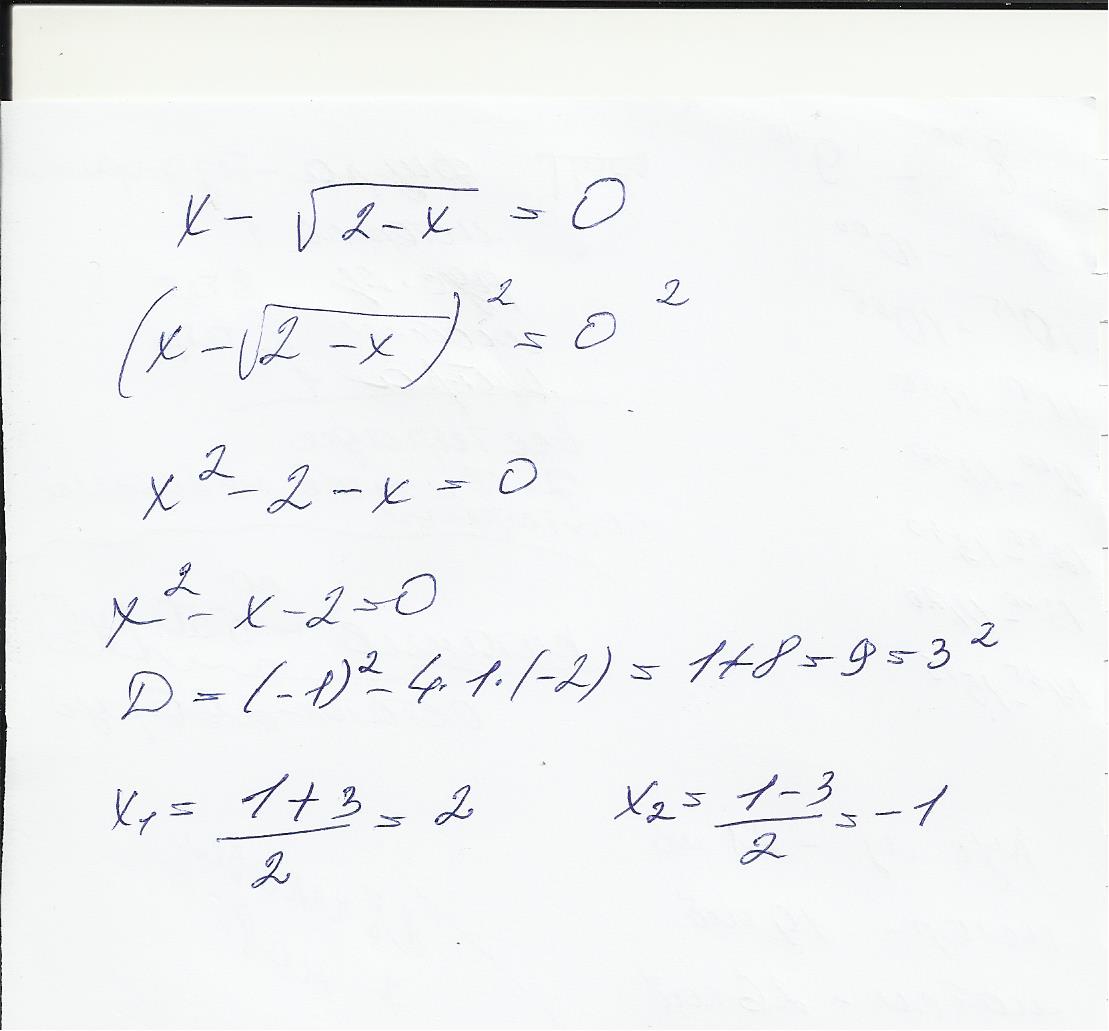 x - √(2 - x) = 0
(x - √(2 - x))² = 0²
x² - 2 - x = 0
x² - x - 2 = 0
D = (-1)² - 4·1·(-2) = 1 + 8 = 9 = 3²
x₁ = (1 + 3)/2 = 2 x₂ = (1 - 3)/2 = -1